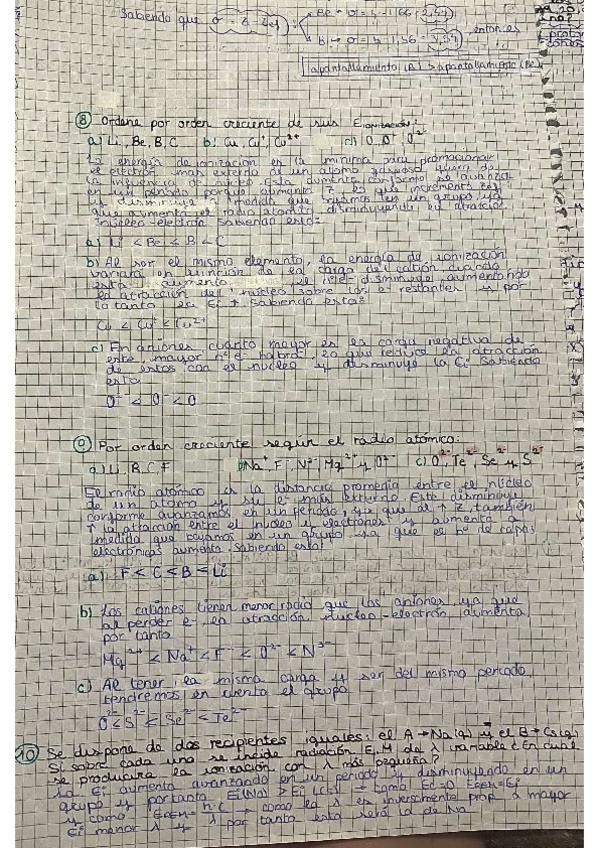 Sabiendo que σ = Be → σ = 4 - 1,66 = 2,44
B → σ = 1,56 = entonces
apantallamiento (B) > apantallamiento (Be)
8 Ordene por orden creciente de sus E ionización:
a) Li, Be, B, C b) Cu, Cu⁺, Cu²⁺ c) O, O⁻, O²⁻
La energía de ionización en la mínima para promocionar
el electrón mas externo de un átomo gaseoso
la influencia de núcleo esta aumenta conforme se avanza
en un periodo ya que aumenta Z es que incrementa
y disminuye a medida que bajamos en un grupo, ya
que aumenta el radio atómico disminuyendo la atracción
núcleo-electrón. Sabiendo esto:
a) Li < Be < B < C
b) Al ser el mismo elemento, la energía de ionización
variará en función de la carga del catión cuando
esta aumenta el disminuye, aumentando
la atracción del núcleo sobre los e⁻ restantes y por
lo tanto la Ei ↑. Sabiendo esto:
Cu < Cu⁺ < Cu²⁺
c) En aniones cuanto mayor es la carga negativa de
este, mayor nº e⁻ habrá, lo que reduce la atracción
de estos con el núcleo y disminuye la Ei. Sabiendo
esto
O²⁻ < O⁻ < O
9 Por orden creciente según el radio atómico:
a) Li, B, C, F b) Na⁺, F⁻, N³⁻, Mg²⁺ y O²⁻ c) O²⁻, Te²⁻, Se²⁻ y S²⁻
El radio atómico es la distancia promedia entre el núcleo
de un átomo y su e⁻ más externo. Este disminuye
conforme avanzamos en un periodo, ya que al ↑ Z, también
↑ la atracción entre el núcleo y electrones y aumenta a
medida que bajamos en un grupo ya que el nº de capas
electrónicas aumenta. Sabiendo esto:
a) F < C < B < Li
b) Los cationes tienen menor radio que los aniones, ya que
al perder e⁻ la atracción núcleo-electrón aumenta,
por tanto
Mg²⁺ < Na⁺ < F⁻ < O²⁻ < N³⁻
c) Al tener la misma carga y ser del mismo periodo,
tendremos en cuenta el grupo
O²⁻ < S²⁻ < Se²⁻ < Te²⁻
10 Se dispone de dos recipientes iguales: el A → Na(g) y el B → Cs(g)
Si sobre cada uno se incide radiación E.M de λ variable ¿En cual
se producirá la ionización con λ más pequeña?
La Ei aumenta avanzando en un periodo y disminuyendo en un
grupo y por tanto Ei(Na) > Ei → como Ec=0 =Ei
y como = h·c → como la λ es inversamente prop. a mayor
Ei menor λ y por tanto esta será la de Na